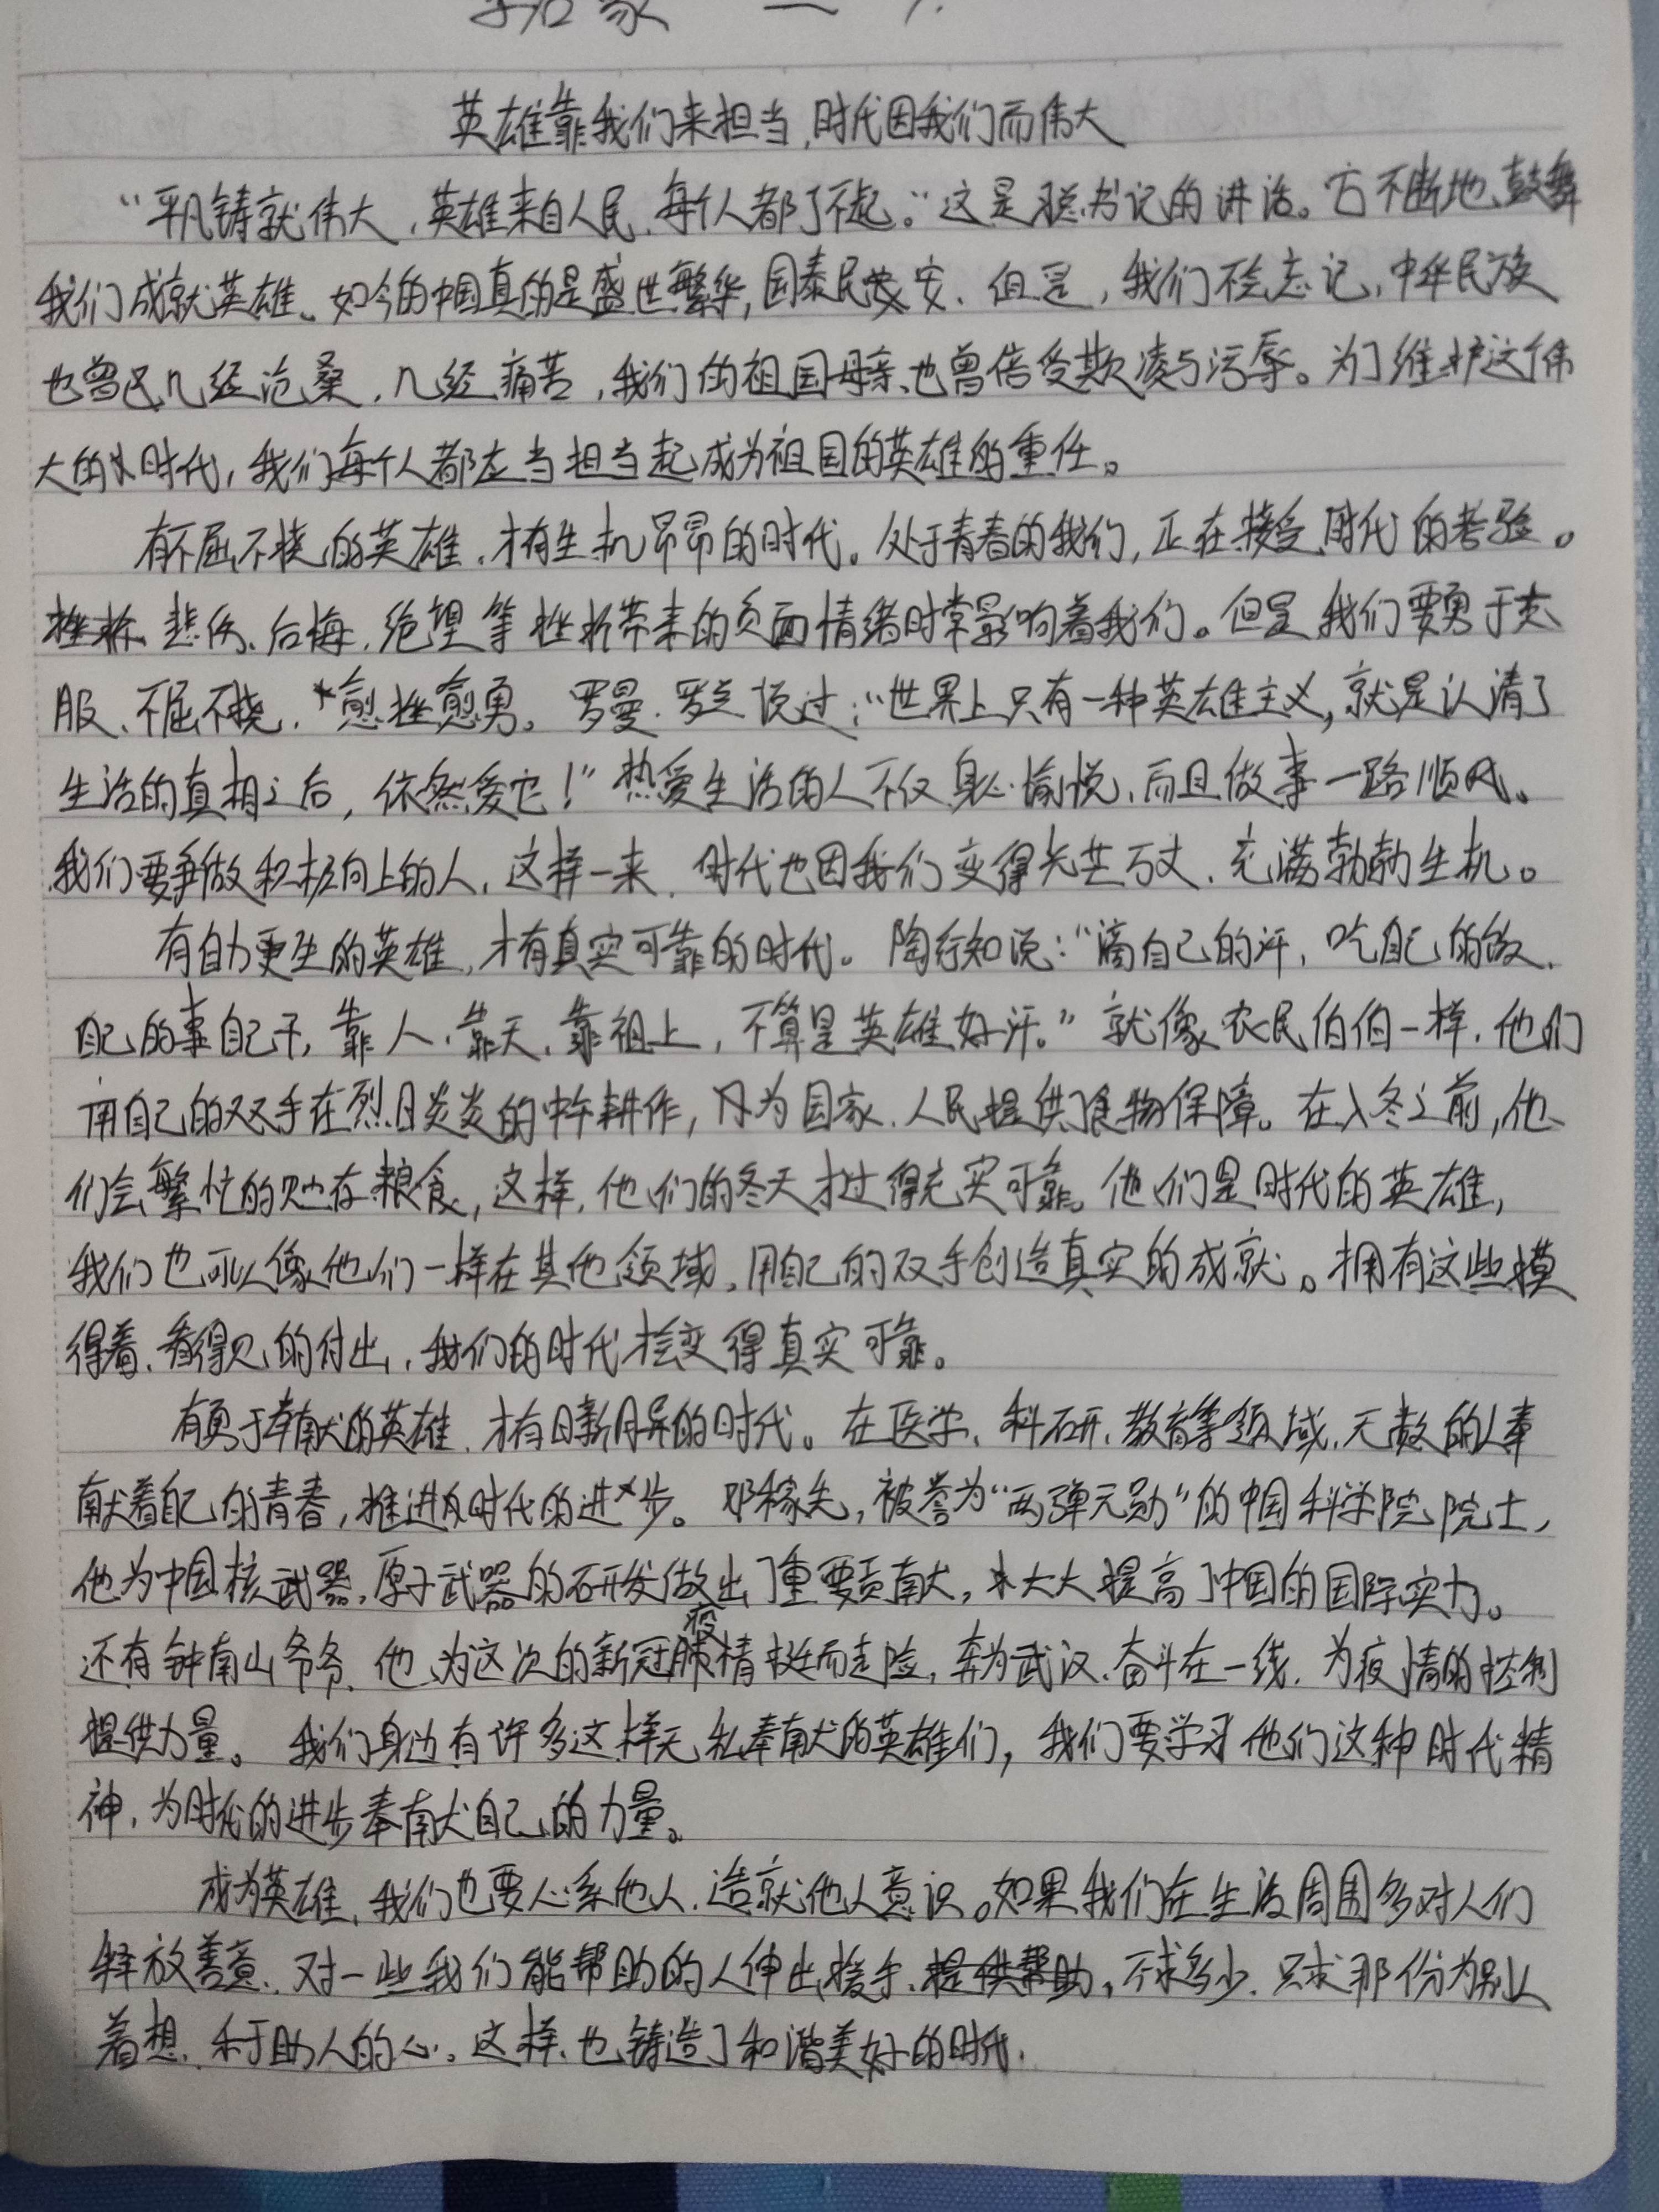 英雄靠我们来担当,时代因我们而伟大
“平凡铸就伟大,英雄来自人民,每个人都了不起。”这是总书记的讲话。它不断地鼓舞
我们成就英雄。如今的中国真的是盛世繁华,国泰民安。但是,我们不会忘记,中华民族
也曾几经沧桑,几经痛苦,我们的祖国母亲也曾倍受欺凌与污辱。为了维护这个伟
大的时代,我们每个人都应当担当起成为祖国的英雄的重任。
有不屈不挠的英雄,才有生机昂昂的时代。处于青春的我们,正在接受时代的考验。
悲伤、后悔、绝望等挫折带来的负面情绪时常影响着我们。但是我们要勇于克
服、不屈不挠,愈挫愈勇。罗曼·罗兰说过:“世界上只有一种英雄主义,就是认清了
生活的真相之后,依然爱它!”热爱生活的人不仅身心愉悦,而且做事一路顺风。
我们要争做积极向上的人,这样一来,时代也因我们变得光芒万丈,充满勃勃生机。
有自力更生的英雄,才有真实可靠的时代。陶行知说:“滴自己的汗,吃自己的饭,
自己的事自己干,靠人、靠天、靠祖上,不算是英雄好汗。”就像农民伯伯一样,他们
用自己的双手在烈日炎炎的中午耕作,为国家、人民提供了食物保障。在入冬之前,他
们会繁忙的贮存粮食,这样,他们的冬天才过得充实可靠。他们是时代的英雄,
我们也可以像他们一样在其他领域,用自己的双手创造真实的成就。拥有这些摸
得着、看得见的付出,我们的时代才会变得真实可靠。
有勇于奉献的英雄,才有日新月异的时代。在医学、科研、教育等领域,无数的人奉
献着自己的青春,推进时代的进步。邓稼先,被誉为“两弹元勋”的中国科学院院士,
他为中国核武器、原子武器的研发做出了重要贡献,大大提高了中国的国际实力。
还有钟南山爷爷,他为这次的新冠疫情挺而走险,奔为武汉,奋斗在一线,为疫情的控制
提供力量。我们身边有许多这样无私奉献的英雄们,我们要学习他们这种时代精
神,为时代的进步奉献自己的力量。
成为英雄,我们也要心系他人,造就他人意识。如果我们在生活周围多对人们
释放善意,对一些我们能帮助的人伸出援手,提供帮助,不求多少,只求那份为别人
着想、乐于助人的心。这样,也铸造了和谐美好的时代.